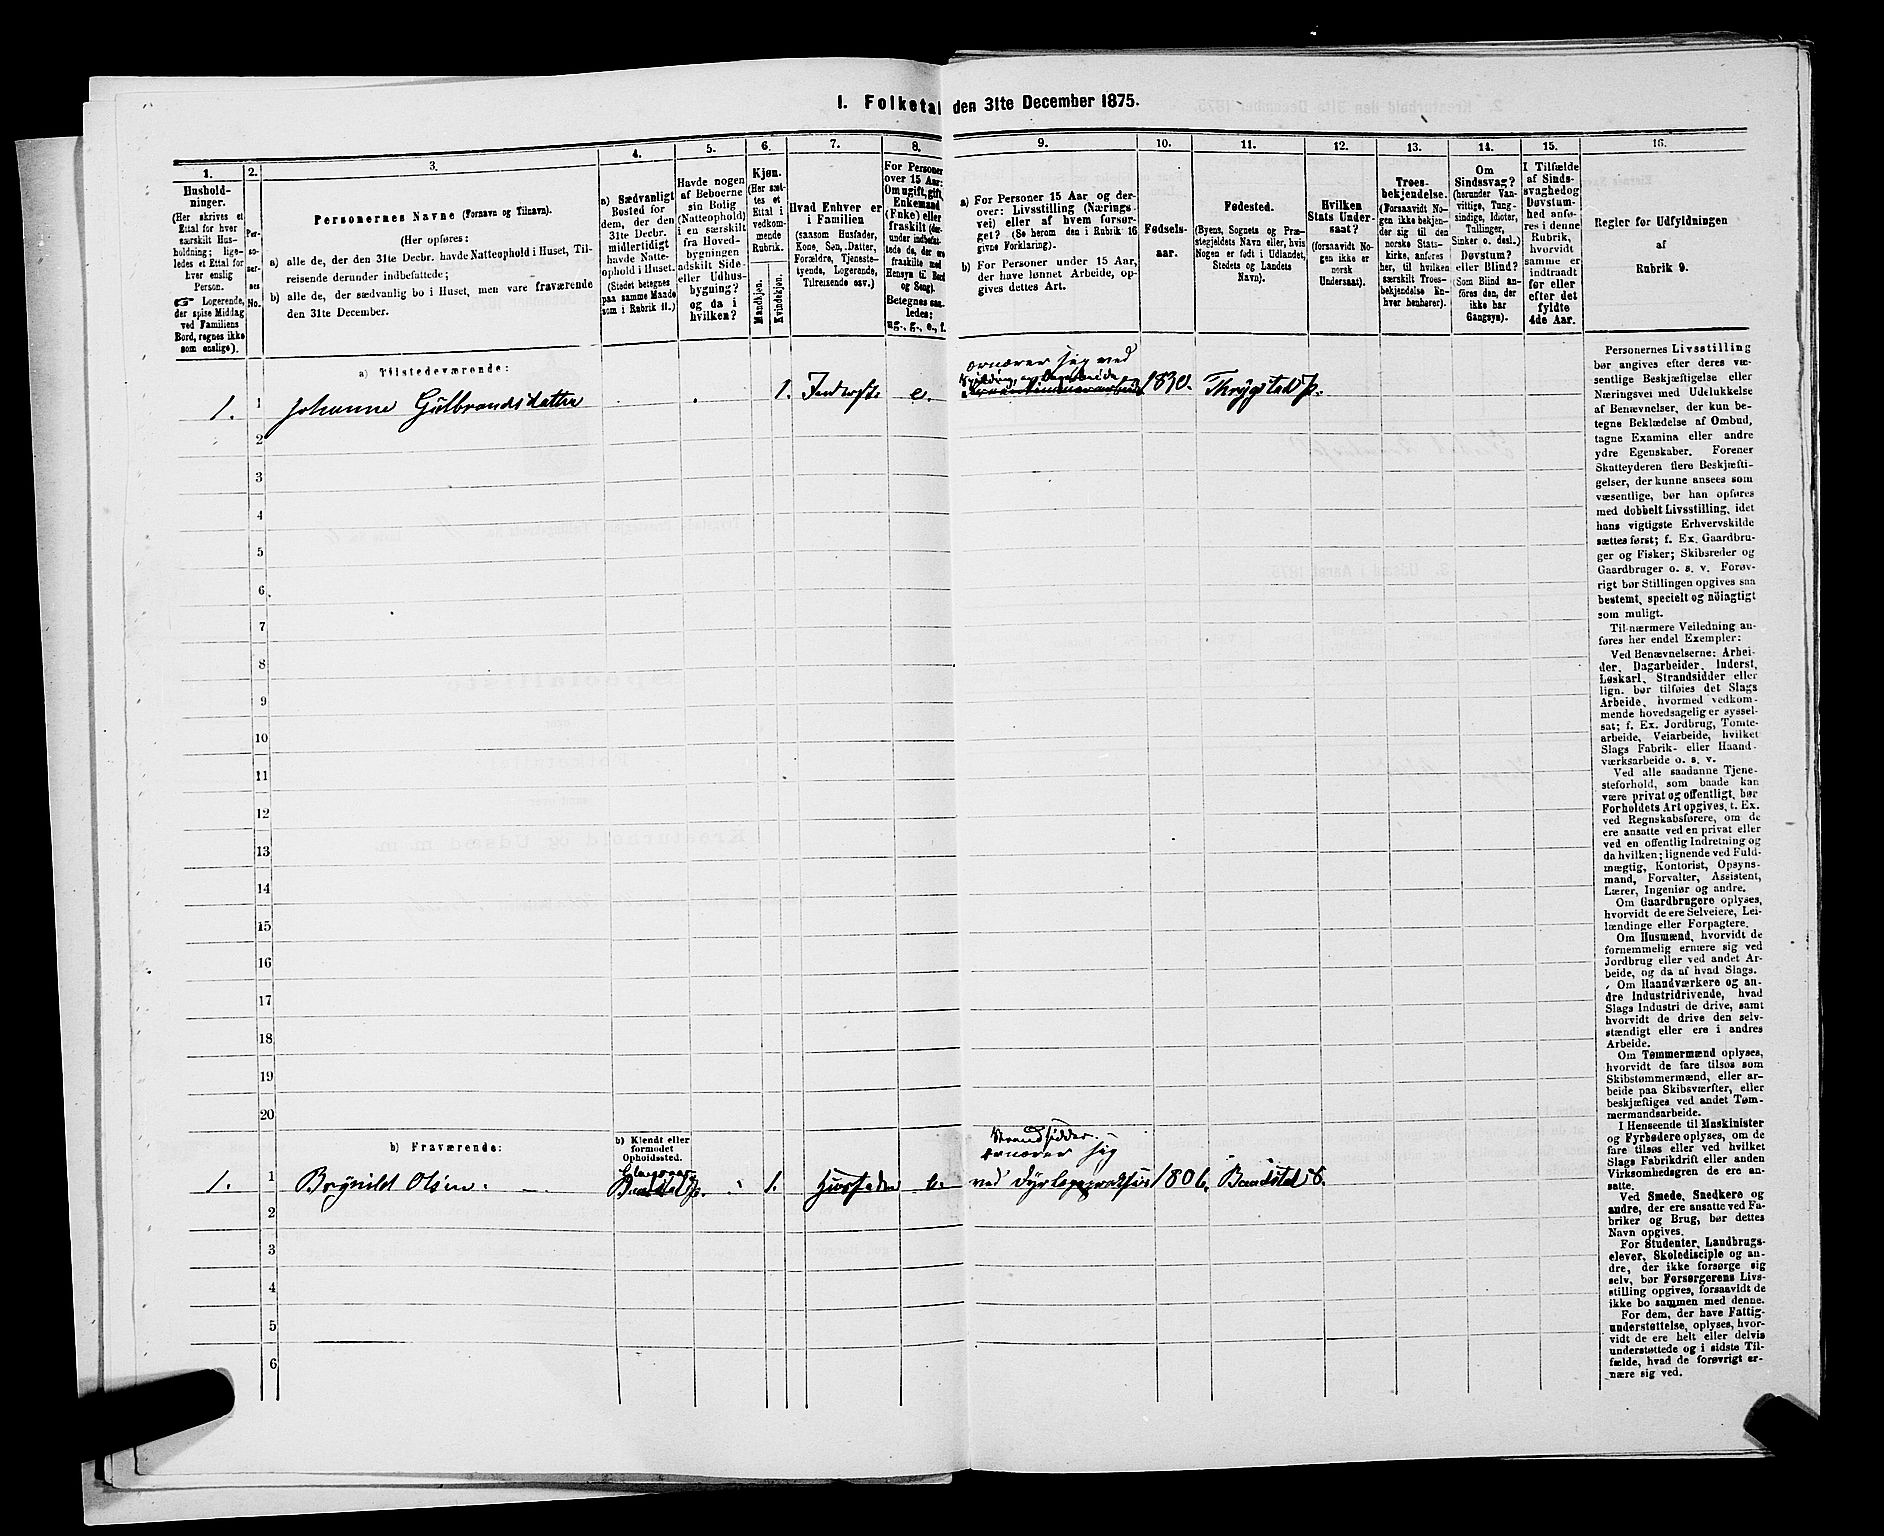 I. Folketal den 31te December 1875.
1.
Hushold-
ninger.
(Her skrives et
Ettal for hver
særskilt Hus-
holdning; lige-
ledes et Ettal for
hver enslig
Person.
Logerende,
der spise Middag
ved Familiens
Bord, regnes ikke
som enslige).
2.
Per-
so-
ner-
nes
No.
3.
Personernes Navne (Fornavn og Tilnavn).
(Her opføres:
a) alle de, der den 31te Decbr. havde Natteophold i Huset, Til-
reisende derunder indbefattede;
b) alle de, der sædvanlig bo i Huset, men vare fraværende
den 31te December.
4.
a) Sædvanligt
Bosted for
dem, der den
31te Decbr.
midlertidigt
havde Natte-
ophold i Huset.
(Stedet betegnes
paa samme Maade
som i Rubrik 11.)
5.
Havde nogen
af Beboerne
sin Bolig
(Natteophold)
i en særskilt
fra Hoved-
bygningen
adskilt Side-
eller Udhus-
bygning?
og da i
hvilken?
6.
Kjøn.
(Her sæt-
tes et
Ettal i
vedkom-
mende
Rubrik.
Mandkjøn.
Kvindekjøn.
7.
Hvad Enhver er
i Familien
(saasom Husfader,
Kone, Søn, Datter,
Forældre, Tjeneste-
tyende, Logerende,
Tilreisende osv.)
8.
For Personer
over 15 Aar:
Om ugift, gift,
Enkemand
(Enke) eller
fraskilt (der-
under indbefat-
tede de, der ere
fraskilte med
Hensyn til Bord
og Seng).
Betegnes saa-
ledes:
ug., g., e., f.
9.
a) For Personer 15 Aar og der-
over: Livsstilling (Nærings-
vei) eller af hvem forsør-
get? (Se herom den i Rubrik 16
givne Forklaring).
b) For Personer under 15 Aar,
der have lønnet Arbeide, op-
gives dettes Art.
10.
Fødsels-
aar.
11.
Fødested.
(Byens, Sognets og Præ-
stegjeldets Navn eller, hvis
Nogen er født i Udlandet,
Stedets og Landets
Navn).
12.
Hvilken
Stats Under-
saat?
(forsaavidt No-
gen ikke er
norsk
Undersaat).
13.
Troes-
bekjendelse.
(Forsaavidt No-
gen ikke bekjen-
der sig til den
norske Stats-
kirke, anføres
her, til hvilken
særskilt Troes-
bekjendelse En-
hver henhører).
14.
Om
Sindssvag?
(herunder Van-
vittige, Tung-
sindige, Idioter,
Tullinger,
Sinker o. desl.)
Døvstum?
eller Blind?
(Som Blind an-
føres den, der
ikke har
Gangsyn).
15.
I Tilfælde
af Sinds-
svaghed og
Døvstum-
hed anfø-
res i denne
Rubrik,
hvorvidt
samme er
indtraadt
før eller
efter det
fyldte
4de Aar.
16.
Regler før Udfyldningen
af
Rubrik 9.
a) Tilstedeværende:
ernærer sig ved
1. 1 Johanne Gulbrandsdatter 1. Inderst. e. 1830. Thrygstad Pr.
2
3
4
5
6
7
8
9
10
11
12
13
14
15
16
17
18
19
20
b) Fraværende:
b) Kjendt eller
formodet
Opholdssted.
Strandsidder
ernærer sig
1. 1 Brynild Olsen. 1. Husfader e. ved Dyrlægepraksis 1806.
2
3
4
5
6
Personernes Livsstilling
bør angives efter deres væ-
sentlige Beskjæftigelse eller
Næringsvei med Udelukkelse
af Benævnelser, der kun be-
tegne Beklædelse af Ombud,
tagne Examina eller andre
ydre Egenskaber. Forener
Skatteyderen flere Beskjæfti-
gelser, der kunne ansees som
væsentlige, bør han opføres
med dobbelt Livsstilling, idet
hans vigtigste Erhvervskilde
sættes først; f. Ex. Gaardbru-
ger og Fisker; Skibsreder og
Gaardbruger o. s. v. Forøv-
rigt bør Stillingen opgives saa
bestemt, specielt og nöiagtigt
som muligt.
Til nærmere Veiledning an-
føres her endel Exempler:
Ved Benævnelserne: Arbei-
der, Dagarbeider, Inderst,
Løskarl, Strandsidder eller
lign. bør tilføies det Slags
Arbeide, hvormed vedkom-
mende hovedsagelig er syssel-
sat; f. Ex. Jordbrug, Tomte-
arbeide, Veiarbeide, hvilket
Slags Fabrik- eller Haand-
værksarbeide o. s. v.
Ved alle saadanne Tjene-
steforhold, som baade kan
være privat og offentligt, bør
Forholdets Art opgives, t. Ex.
ved Regnskabsførere, om de
ere ansatte ved en privat eller
ved en offentlig Indretning og
da hvilken; lignende ved Fuld-
mægtig, Kontorist, Opsyns-
mand, Forvalter, Assistent,
Lærer, Ingeniør og andre.
Om Gaardbrugere oplyses,
hvorvidt de ere Selveiere, Lei-
lændinge eller Forpagtere.
Om Husmænd, hvorvidt de
fornemmelig ernære sig ved
Jordbrug eller ved andet Ar-
beide, og da af hvad Slags.
Om Haandværkere og an-
dre Industridrivende, hvad
Slags Industri de drive, samt
hvorvidt de drive den selv-
stændigt eller ere i andres
Arbeide.
Om Tømmermænd oplyses,
hvorvidt de fare tilsøs som
Skibstømmermænd, eller ar-
beide paa Skibsværfter, eller
beskjæftiges ved andet Tøm-
mermandsarbeide.
I Henseende til Maskinister
og Fyrbødere oplyses, om de
fare tilsøs eller ved hvilket
Slags Fabrikdrift eller anden
Virksomhedsgren de ere an-
satte.
Ved Smede, Snedkere og
andre, der ere ansatte ved Fa-
briker og Brug, bør dettes
Navn opgives.
For Studenter, Landbrugs-
elever, Skoledisciple og an-
dre, der ikke forsørge sig
selv, bør Forsørgerens Livs-
stilling opgives, forsaavidt de
ikke bo sammen med denne.
For dem, der have Fattig-
understøttelse, oplyses, hvor-
vidt de ere helt eller delvis
understøttede og i sidste Til-
fælde, hvad de forøvrigt er-
nære sig ved.